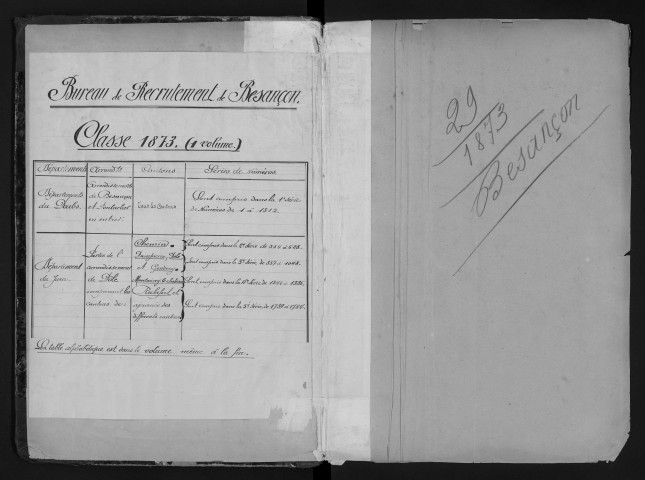 Bureau de Recrutement de Besançon.
Classe 1873. (1 volume.)
Départements Arrondts Cantons Séries de numéros
Département du Doubs.
Arrondissements de Besançon et Pontarlier en entier.
Tous les Cantons
Sont compris dans la 1e Série
de Numéros de 1 à
Département du Jura
Partie de l'
arrondissement
de Dôle
comprenant les
cantons de:
Chemin
Dampierre, Dôle
et Gendrey
Rochefort et
différents cantons
Sont compris dans la 2e Série de
Sont compris dans la 3e Série de
Sont compris dans la 4e Série de
Sont compris dans la 5e Série de
La table alphabétique est dans le volume même à la fin.
29
1873
Besançon